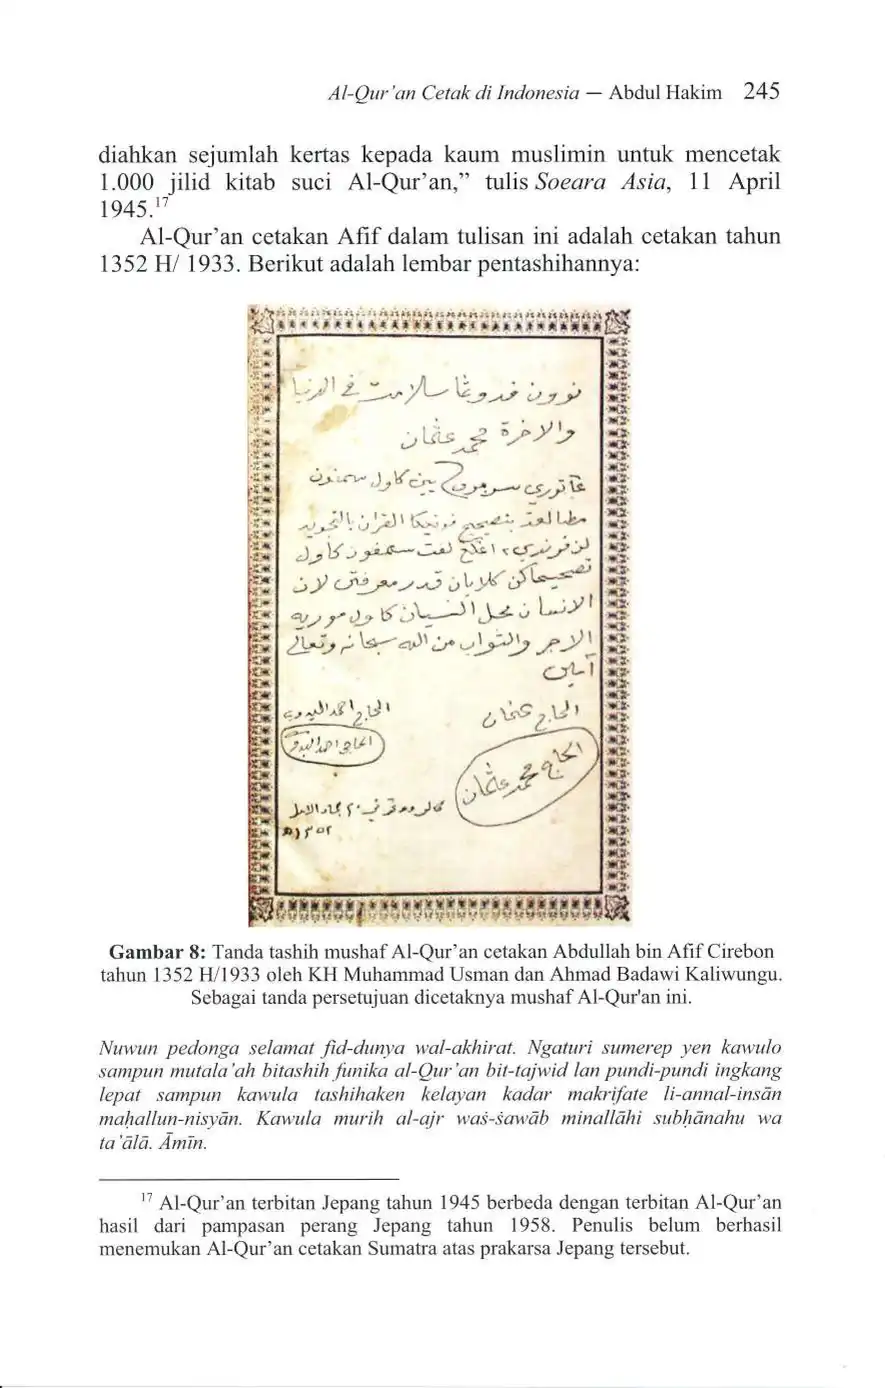 Al-Qur'an Cetak di Indonesia — Abdul Hakim 245
diahkan sejumlah kertas kepada kaum muslimin untuk mencetak
1.000 jilid kitab suci Al-Qur'an," tulis Soeara Asia, 11 April
1945.¹⁷
Al-Qur'an cetakan Afif dalam tulisan ini adalah cetakan tahun
1352 H/ 1933. Berikut adalah lembar pentashihannya:
نوون فدوڠا سلامت في الدنيا
والاخرة محمد عثمان
القران بالتجويد
الانسان محل النسيان كاول موريه
الاجر والثواب من الله سبحانه وتعالى
آمين
الحاج عثمان
الحاج احمد البدوي
الحاج احمد البدوي
الحاج محمد عثمان
١٣٥٢
Gambar 8: Tanda tashih mushaf Al-Qur'an cetakan Abdullah bin Afif Cirebon
tahun 1352 H/1933 oleh KH Muhammad Usman dan Ahmad Badawi Kaliwungu.
Sebagai tanda persetujuan dicetaknya mushaf Al-Qur'an ini.
Nuwun pedonga selamat fid-dunya wal-akhirat. Ngaturi sumerep yen kawulo
sampun mutala'ah bitashih funika al-Qur'an bit-tajwid lan pundi-pundi ingkang
lepat sampun kawula tashihaken kelayan kadar makrifate li-annal-insān
maḥallun-nisyān. Kawula murih al-ajr waś-śawāb minallāhi subḥānahu wa
ta'ālā. Āmīn.
¹⁷ Al-Qur'an terbitan Jepang tahun 1945 berbeda dengan terbitan Al-Qur'an
hasil dari pampasan perang Jepang tahun 1958. Penulis belum berhasil
menemukan Al-Qur'an cetakan Sumatra atas prakarsa Jepang tersebut.